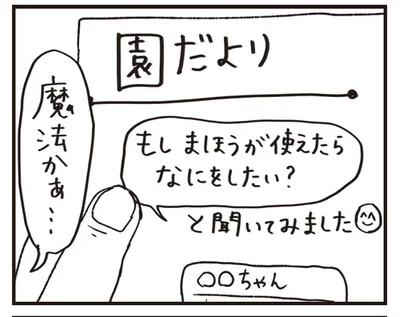 園だより
もし まほうが使えたら
なにをしたい?
と聞いてみました
魔法かぁ…
〇〇ちゃん